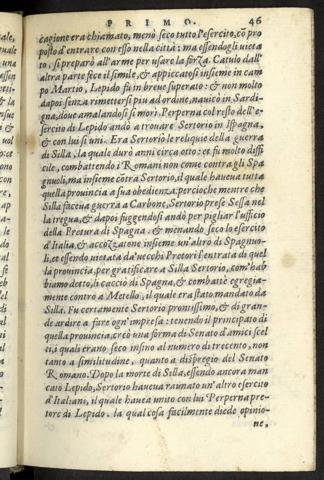 PRIMO. 46
cagione era chiamato, menò seco tutto l'esercito, cō pro
posto d'entrare con esso nella città: ma essendogli uieta
to, si preparò all'arme per usare la forza. Catulo dall'
altra parte fece il simile, & appiccatosi insieme in cam
po Martio, Lepido fu in breue superato: & non molto
dapoi senza rimettersi piu ad ordine, nauicò in Sardi-
gna, doue amalandosi si morì. Perperna col resto dell'e-
sercito di Lepido andò a trouare Sertorio in Ispagna,
& con lui si unì. Era Sertorio le reliquie della guerra
di Silla, la quale durò anni circa otto: et fu molto diffi
cile, combattendo i Romani non come contra gli Spa
gnuoli, ma insieme cōtra Sertorio, il quale haueua tutta
quella prouincia a sua obedienza: percioche mentre che
Silla faceua guerra a Carbone, Sertorio prese Sessa nel
la tregua, & dapoi fuggendosi andò per pigliar l'ufficio
della Pretura di Spagna: & menando seco lo esercito
d'Italia, & accozzatone insieme un'altro di Spagnuo-
li, et essendo uietata da' uecchi Pretori l'entrata di quel
la prouincia, per gratificare a Silla, Sertorio, com'hab
biamo detto, li cacciò di Spagna, & combattè egregia-
mente contro a Metello, il quale era stato mandato da
Silla. Fu certamente Sertorio prontissimo, & di gran-
de ardire a fare ogn'impresa: tenendo il principato di
quella prouincia, creò una forma di Senato d'amici scel
ti, i quali erano seco insino al numero di trecento, non
tanto a similitudine, quanto a dispregio del Senato
Romano. Dopo la morte di Silla, essendo ancora man
cato Lepido, Sertorio haueua raunato un'altro esercito
d'Italiani, il quale haueua unito con lui Perperna pre-
tore di Lepido. la qual cosa facilmente diede opinio-
ne,